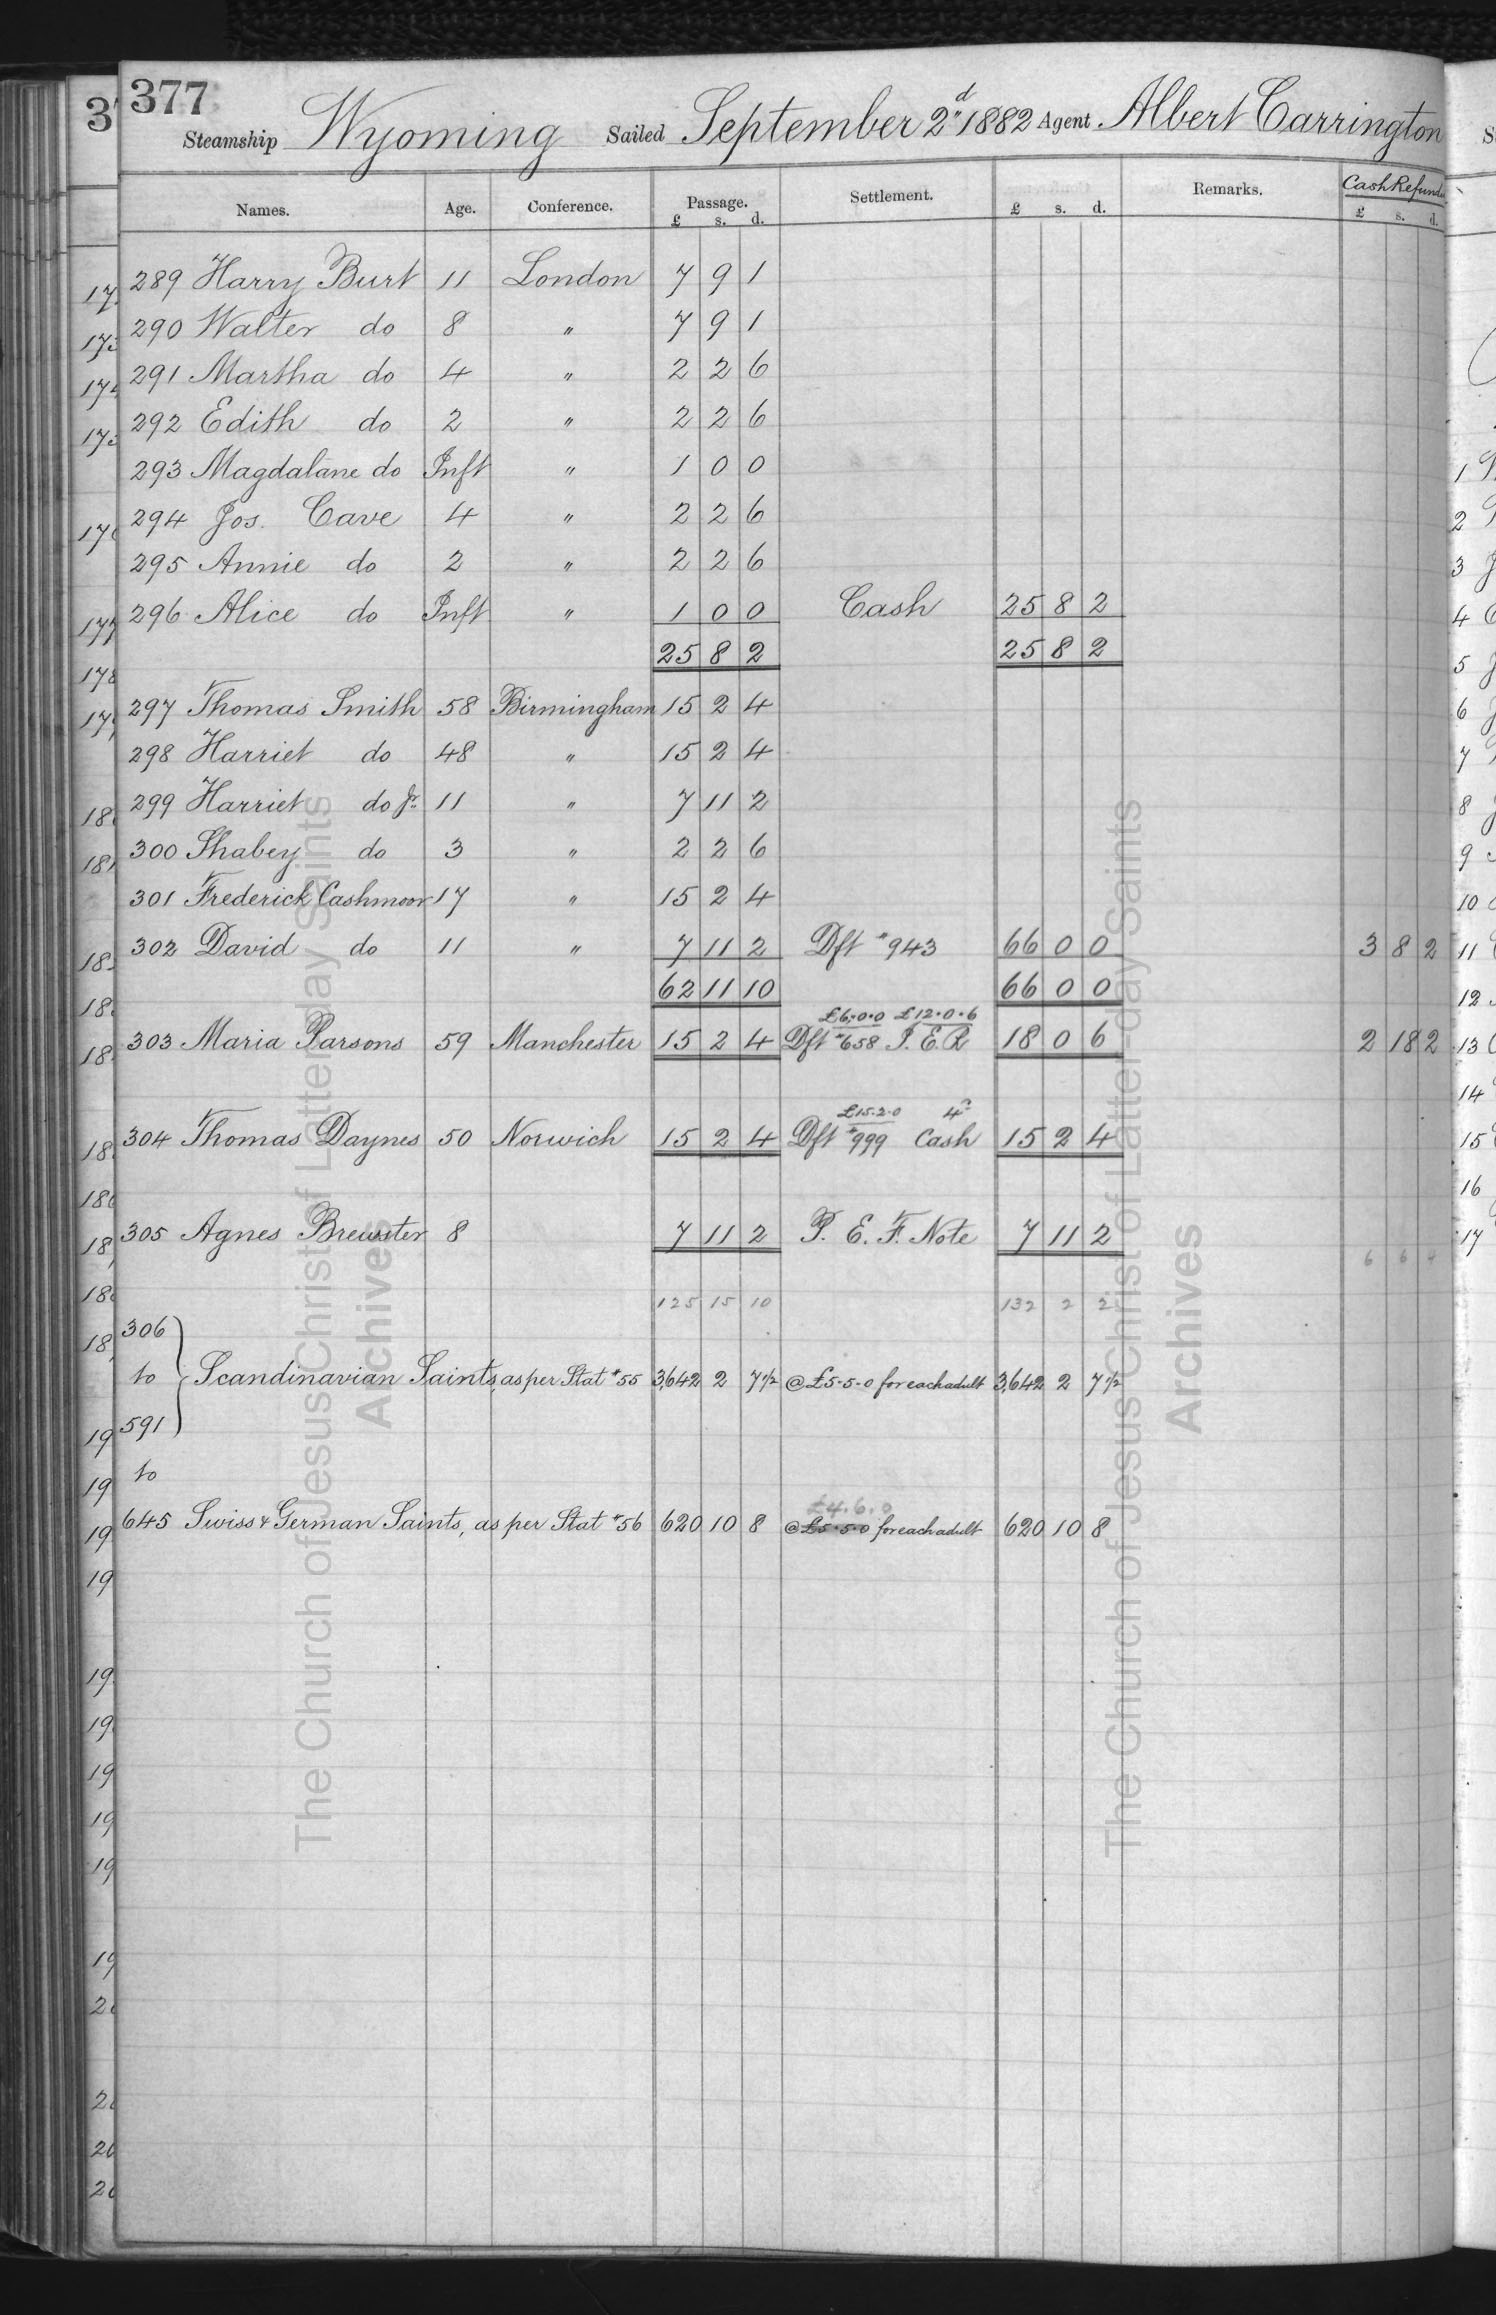 377
Steamship Wyoming Sailed September 2d 1882 Agent Albert Carrington
Names. Age. Conference. Passage. £ s. d. Settlement. £ s. d. Remarks. Cash Refunded £ s. d.
289 Harry Burt 11 London 7 9 1
290 Walter do 8 " 7 9 1
291 Martha do 4 " 2 2 6
292 Edith do 2 " 2 2 6
293 Magdalane do Inft " 1 0 0
294 Jos. Cave 4 " 2 2 6
295 Annie do 2 " 2 2 6
296 Alice do Inft " 1 0 0 Cash 25 8 2
25 8 2 25 8 2
297 Thomas Smith 58 Birmingham 15 2 4
298 Harriet do 48 " 15 2 4
299 Harriet do Jr. 11 " 7 11 2
300 Shabey do 3 " 2 2 6
301 Frederick Cashmoor 17 " 15 2 4
302 David do 11 " 7 11 2 Dft #943 66 0 0 3 8 2
62 11 10 66 0 0
£6.0.0 £12.0.6
303 Maria Parsons 59 Manchester 15 2 4 Dft #658 P.E.R 18 0 6 2 18 2
£15.2.0 4d
304 Thomas Daynes 50 Norwich 15 2 4 Dft #999 Cash 15 2 4
305 Agnes Brewster 8 7 11 2 P. E. F. Note 7 11 2
6 6 4
125 15 10 132 2 2
306
to Scandinavian Saints, as per Stat #55 3,642 2 7 1/2 @ £5-5-0 for each adult 3,642 2 7 1/2
591
to
£4.6.0
645 Swiss & German Saints, as per Stat #56 620 10 8 @ £5.5.0 for each adult 620 10 8
The Church of Jesus Christ of Latter-day Saints
Archives
The Church of Jesus Christ of Latter-day Saints
Archives